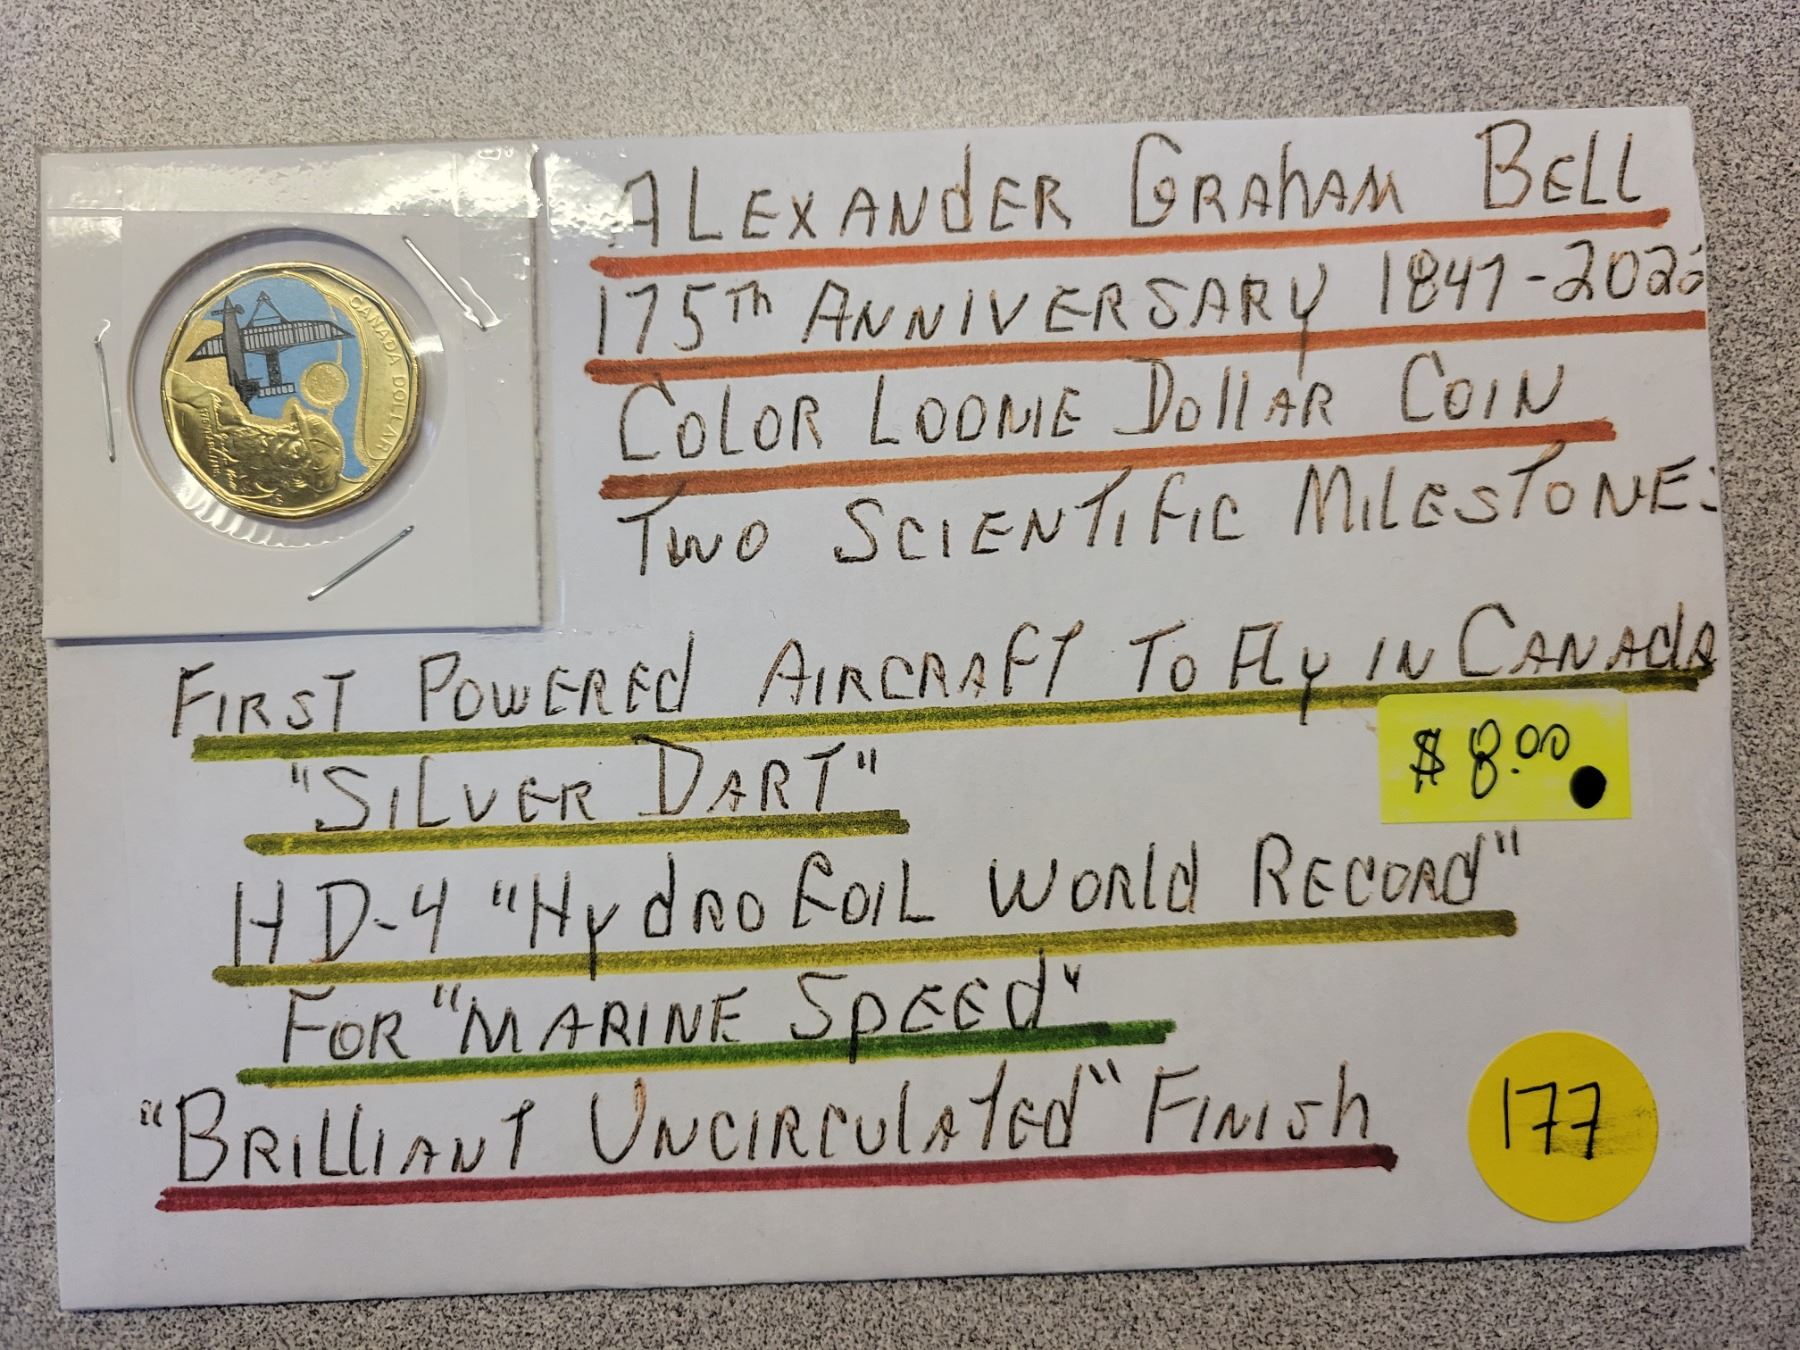 CANADA DOLLAR
ALEXANDER GRAHAM BELL
175TH ANNIVERSARY 1847-2022
COLOR LOONIE DOLLAR COIN
TWO SCIENTIFIC MILESTONES
FIRST POWERED AIRCRAFT TO FLY IN CANADA
"SILVER DART"
$8.00
HD-4 "HYDROFOIL WORLD RECORD"
FOR "MARINE SPEED"
"BRILLIANT UNCIRCULATED" FINISH
177